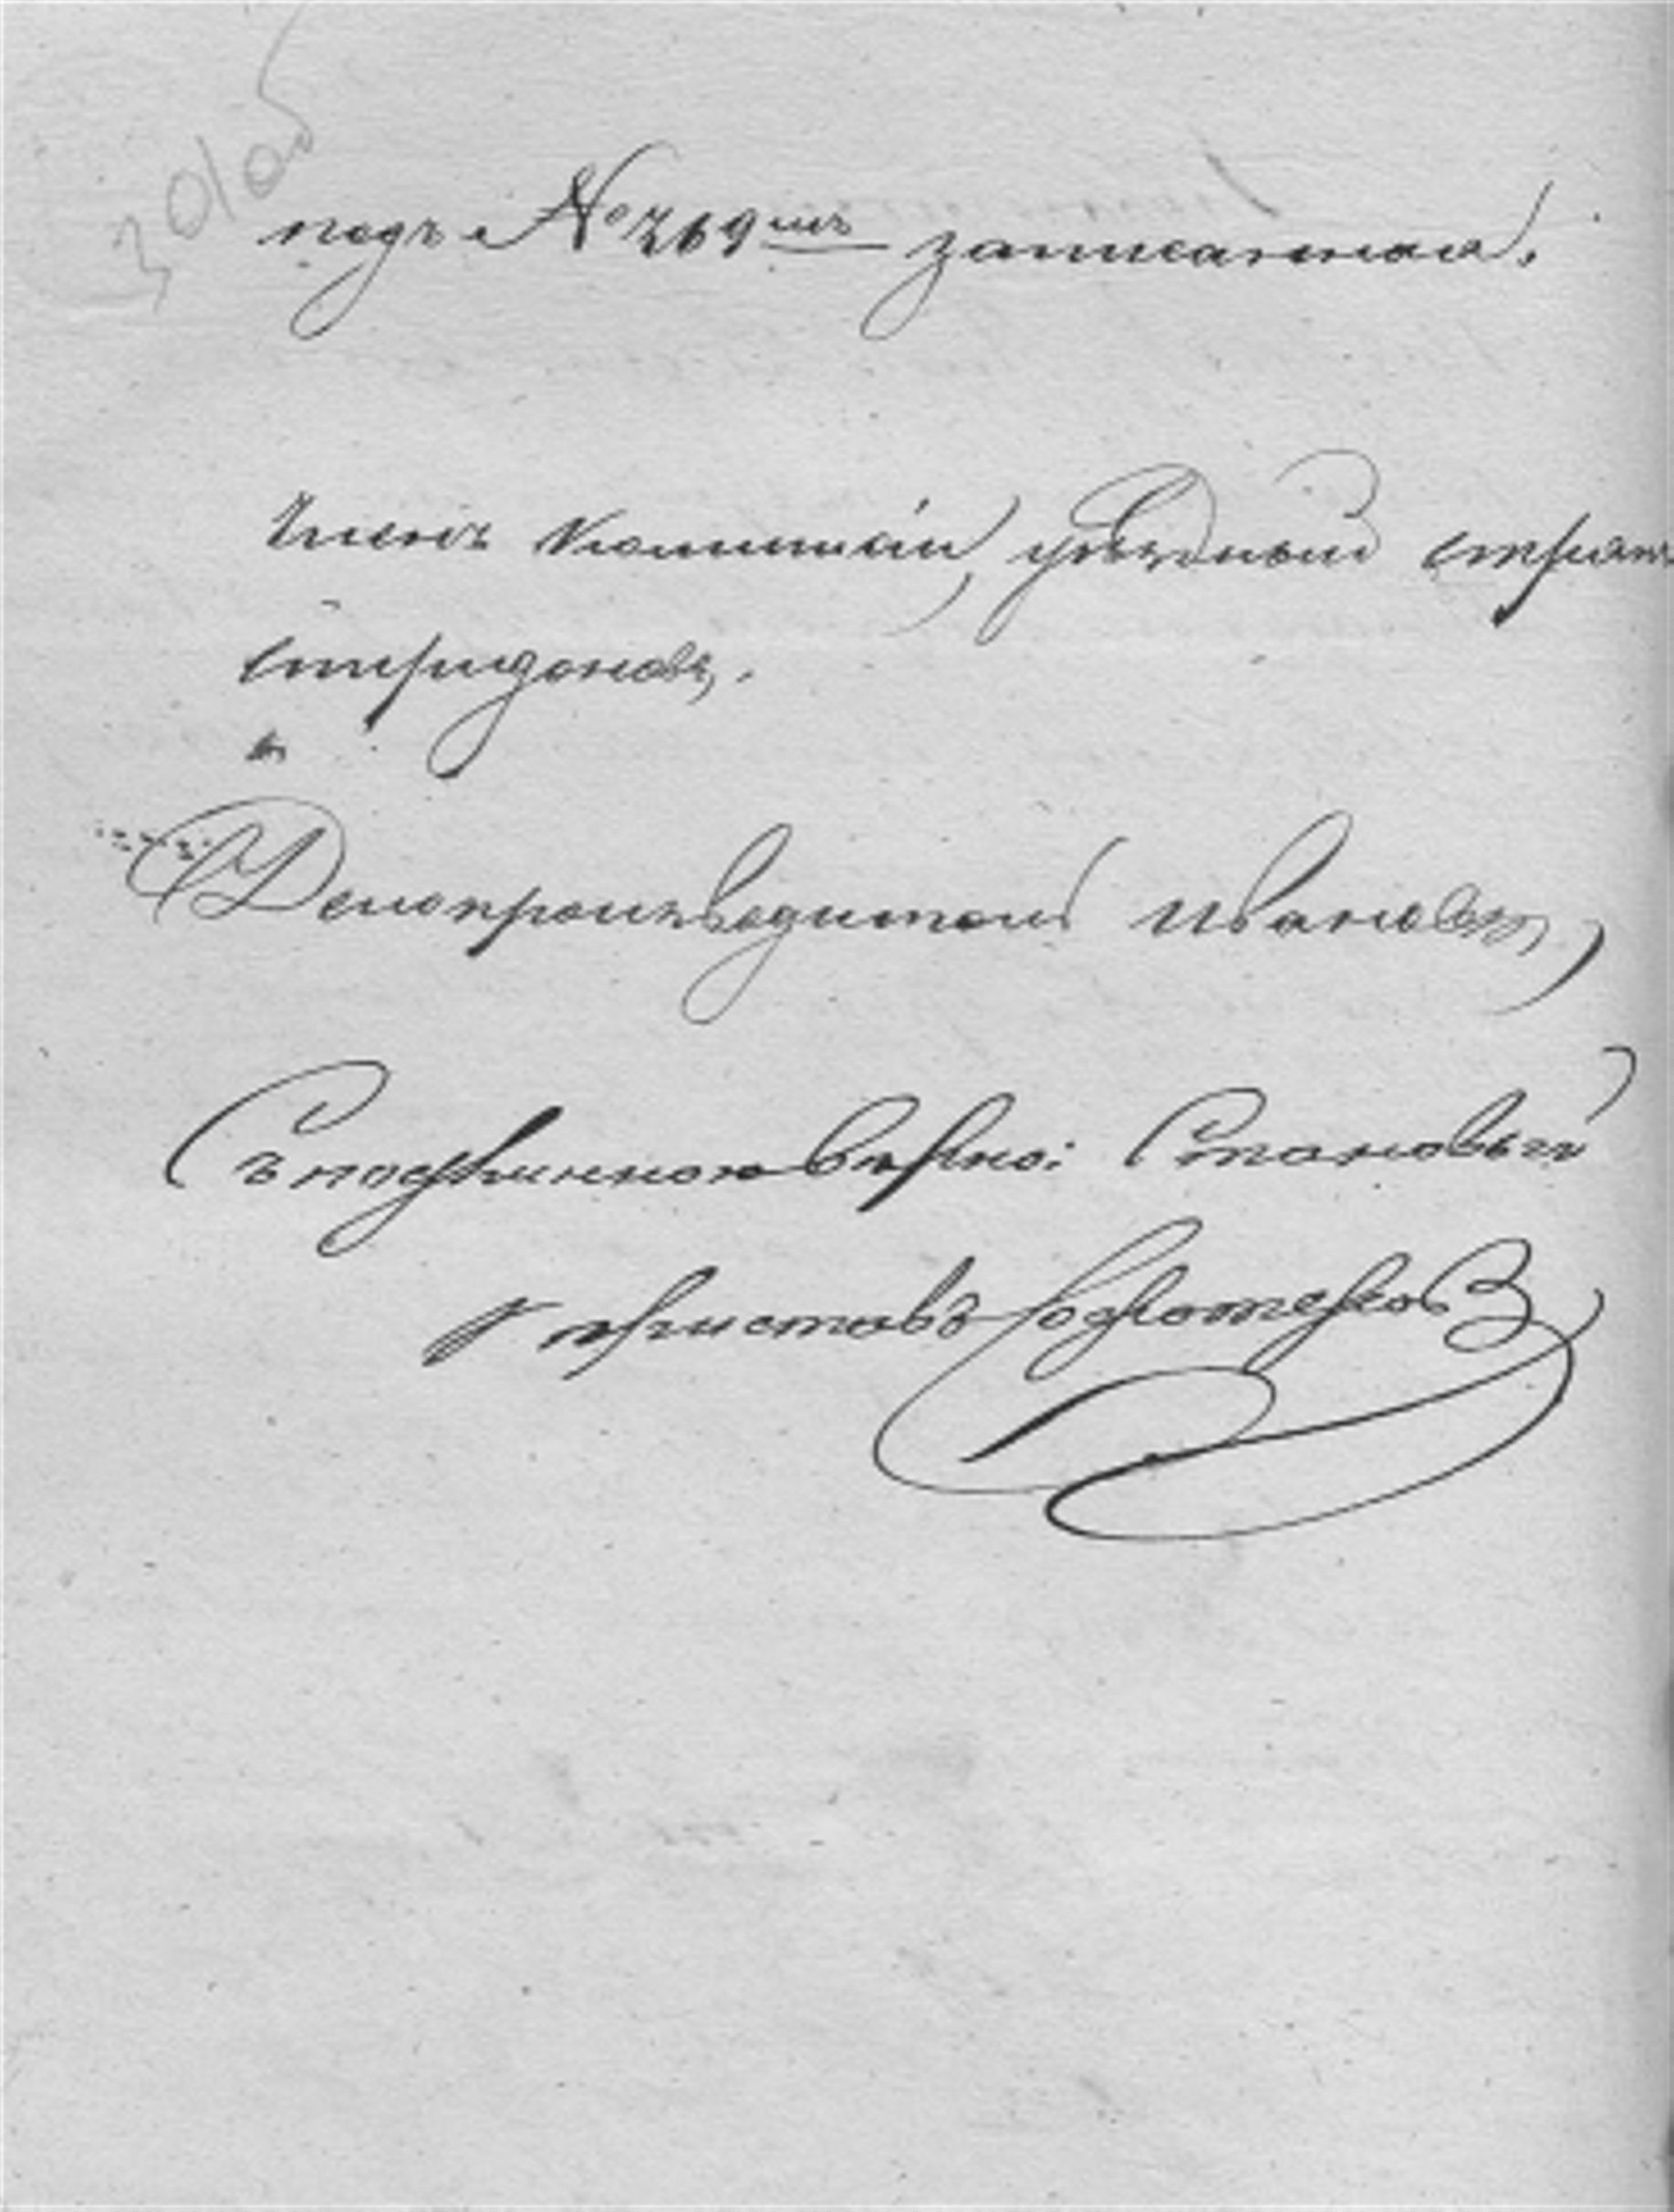 30 об
подъ № 269мъ записанная.
Членъ Коммисіи, уѣздный стряп
Спиридоновъ.
Делопроизводитель Ивановъ,
Съ подлинною вѣрно: Становый
приставъ